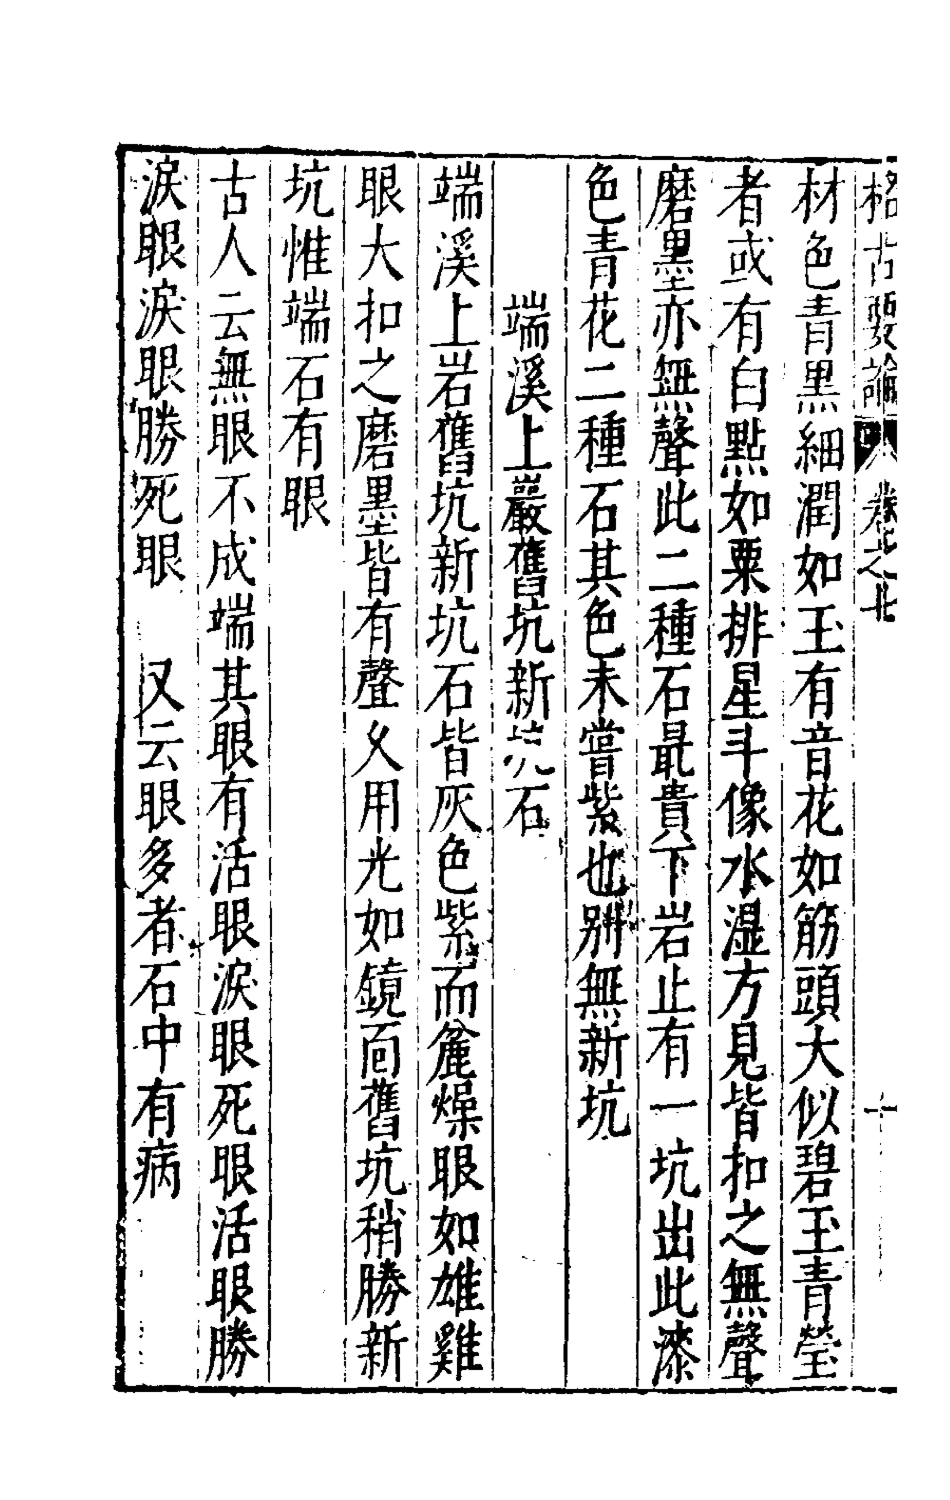 格古要論　卷之七　十
材色青黑細潤如玉有音花如筋頭大似碧玉青瑩
者或有白點如粟排星斗像水湿方見皆扣之無聲
磨墨亦無聲此二種石最貴下岩止有一坑出此漆
色青花二種石其色未嘗紫也別無新坑
端溪上巖舊坑新坑石
端溪上岩舊坑新坑石皆灰色紫而麄燥眼如雄雞
眼大扣之磨墨皆有聲久用光如鏡面舊坑稍勝新
坑惟端石有眼
古人云無眼不成端其眼有活眼淚眼死眼活眼勝
淚眼淚眼勝死眼　又云眼多者石中有病